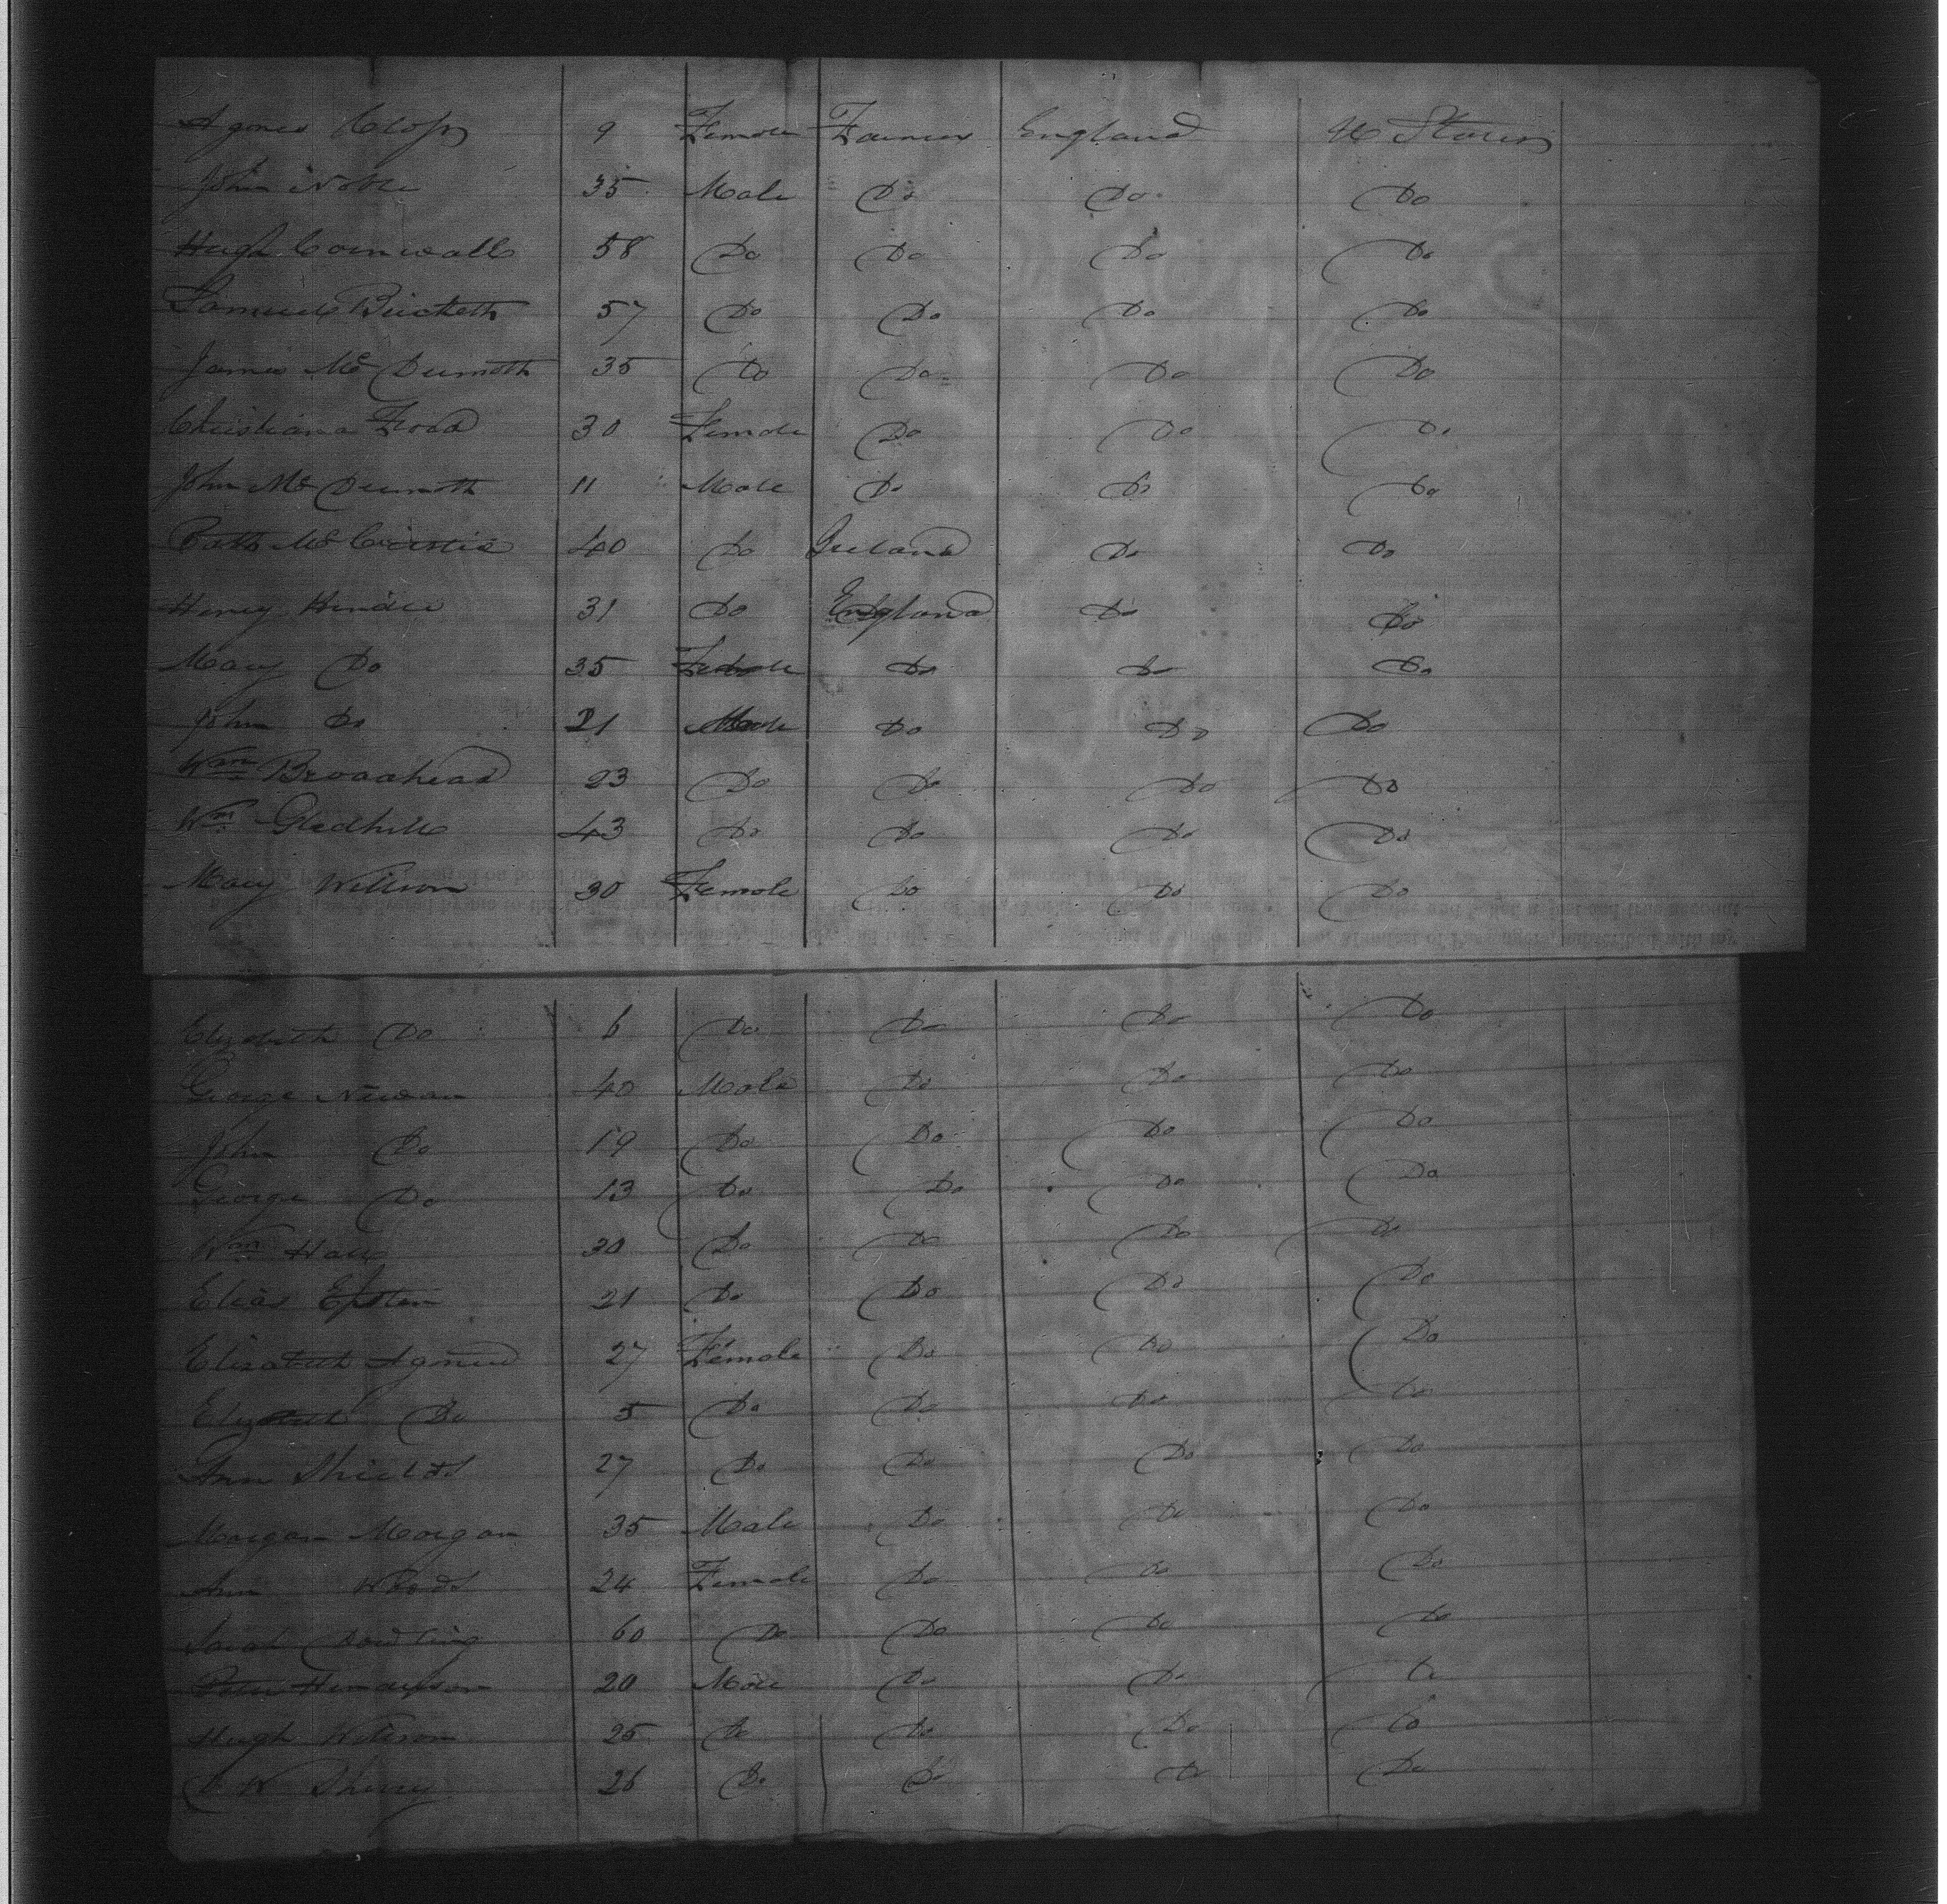 Agnes Cross 9 Female Farmer England U States
John Noble 35 Male Do Do Do
Hugh Cornwall 58 Do Do Do Do
Samuel Bricketh 57 Do Do Do Do
James Mc Dermoth 35 Do Do Do Do
Christiana Frood 30 Female Do Do Do
John Mc Dermoth 11 Male Do Do Do
Patk Mc 40 Do Ireland Do Do
Henry Hinde 31 Do England Do Do
Mary Do 35 Female Do Do Do
John Do 21 Male Do Do Do
Wm Broadhead 23 Do Do Do Do
Wm Gledhill 43 Do Do Do Do
Mary Willson 30 Female Do Do Do
Elizabeth Do 6 Do Do Do Do
George 40 Male Do Do Do
John Do 19 Do Do Do Do
George Do 13 Do Do Do Do
Wm Hall 30 Do Do Do Do
Elias Epstein 21 Do Do Do Do
Elizabeth Agnew 27 Female Do Do Do
Elizabeth Do 5 Do Do Do Do
Ann Shields 27 Do Do Do Do
Morgan Morgan 35 Male Do Do Do
Ann Woods 24 Female Do Do Do
Sarah Dowling 60 Do Do Do Do
Peter Henderson 20 Male Do Do Do
Hugh Willson 25 Do Do Do Do
W Sherry 26 Do Do Do Do